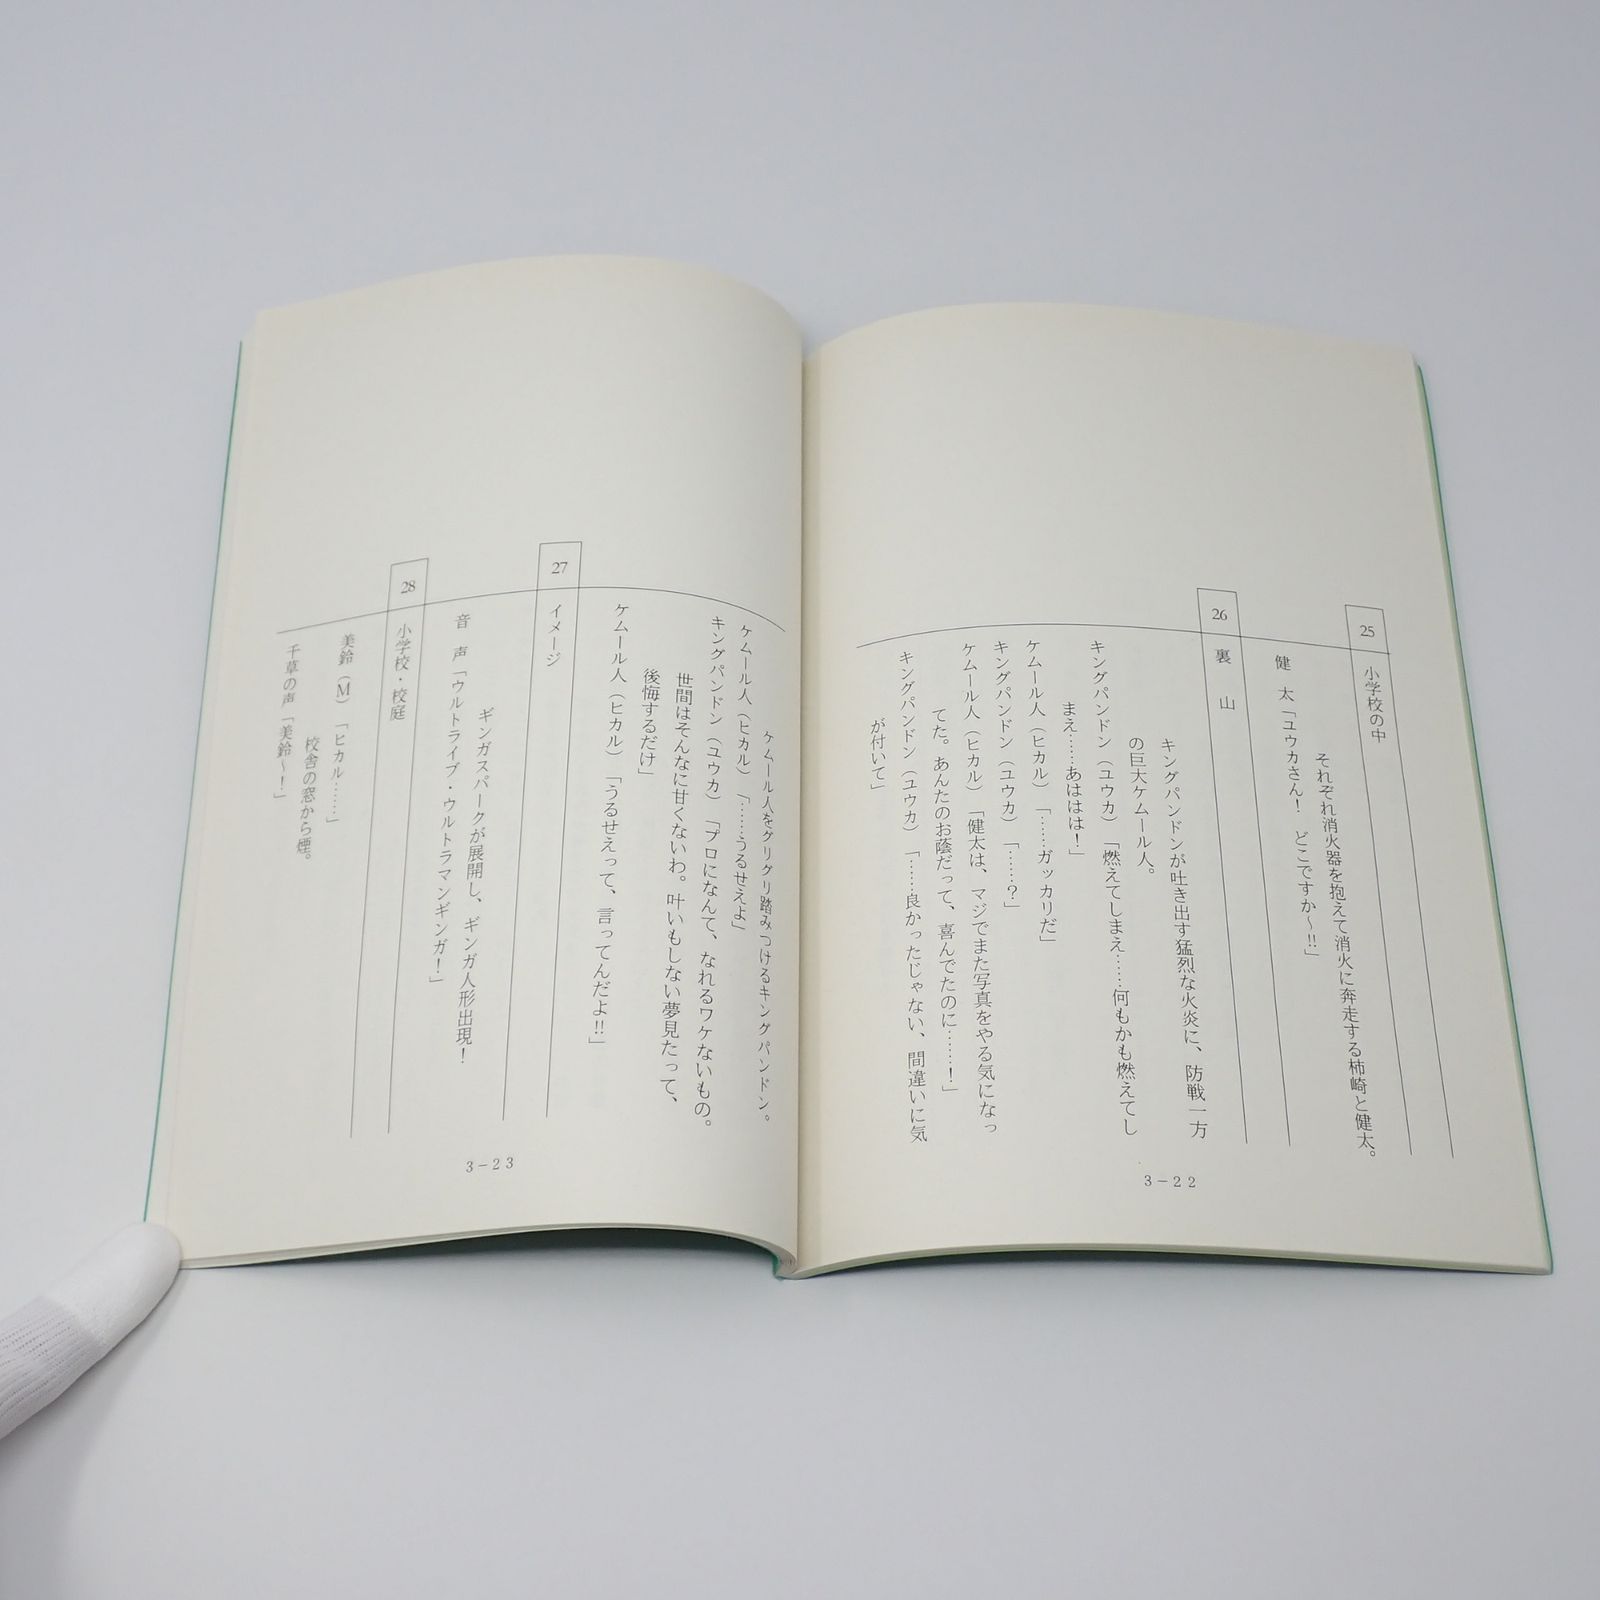 25 小学校の中
それぞれ消火器を抱えて消火に奔走する柿崎と健太。
健　太「ユウカさん！　どこですか～!!」
26 裏　山
キングパンドンが吐き出す猛烈な火炎に、防戦一方
の巨大ケムール人。
キングパンドン（ユウカ）「燃えてしまえ……何もかも燃えてし
まえ……あははは！」
ケムール人（ヒカル）「……ガッカリだ」
キングパンドン（ユウカ）「……？」
ケムール人（ヒカル）「健太は、マジでまた写真をやる気になっ
てた。あんたのお蔭だって、喜んでたのに……！」
キングパンドン（ユウカ）「……良かったじゃない、間違いに気
が付いて」
3－22
ケムール人をグリグリ踏みつけるキングパンドン。
ケムール人（ヒカル）「……うるせえよ」
キングパンドン（ユウカ）「プロになんて、なれるワケないもの。
世間はそんなに甘くないわ。叶いもしない夢見たって、
後悔するだけ」
ケムール人（ヒカル）「うるせえって、言ってんだよ!!」
27 イメージ
ギンガスパークが展開し、ギンガ人形出現！
音　声「ウルトライブ・ウルトラマンギンガ！」
28 小学校・校庭
美鈴（M）「ヒカル……」
校舎の窓から煙。
千草の声「美鈴～！」
3－23